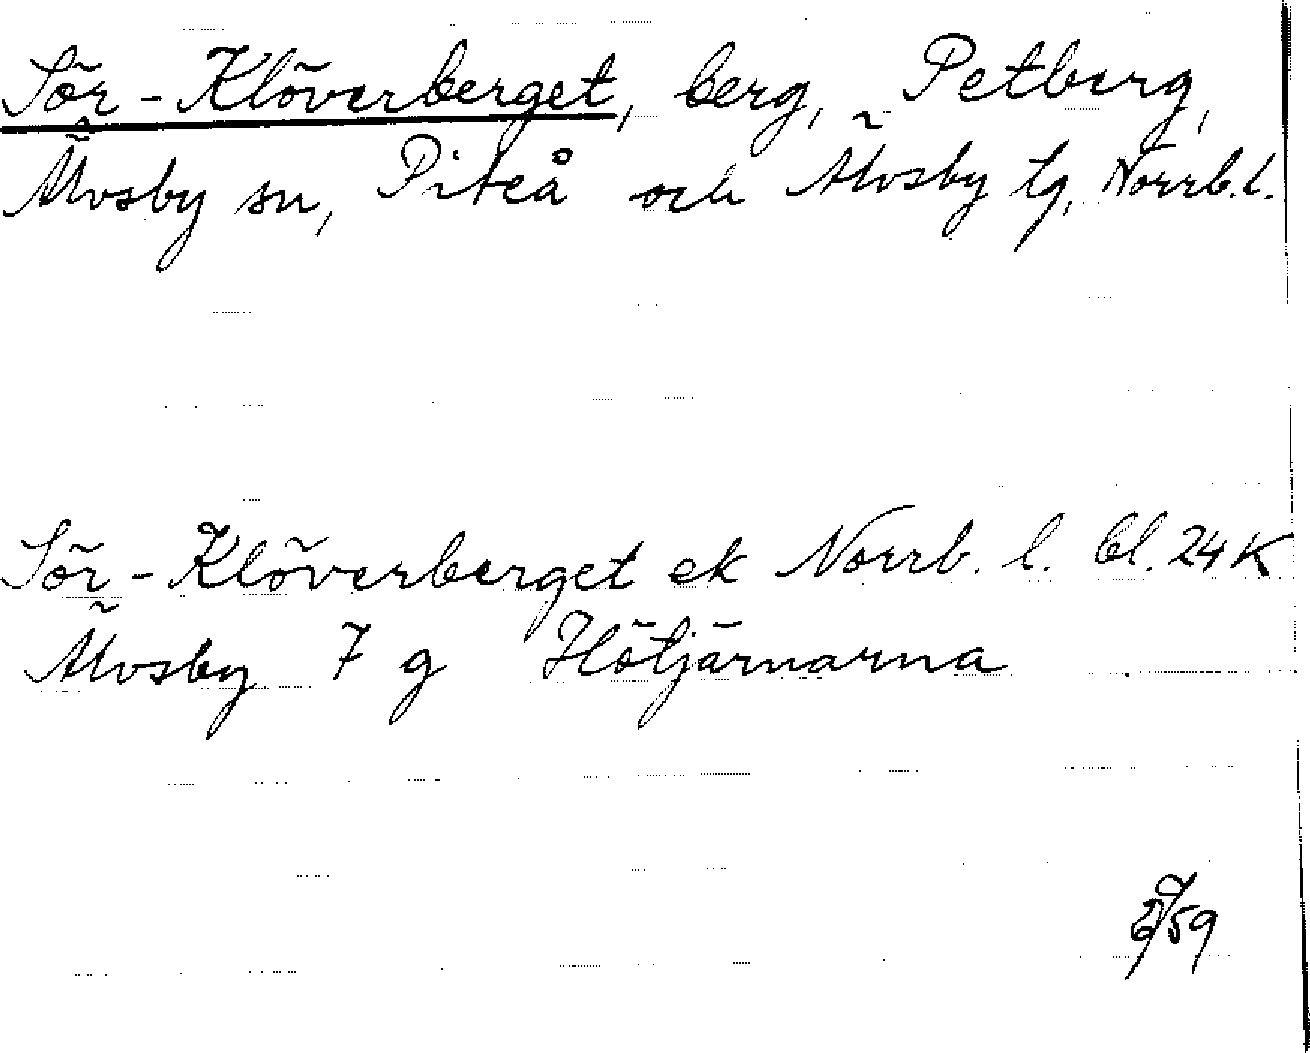 Sör-Klöverberget, berg, Petberg,
Älvsby sn, Piteå och Älvsby tg, Norrb.l.
Sör-Klöverberget ek Norrb. l. bl. 24 K
Älvsby 7 g Hötjärnarna
59